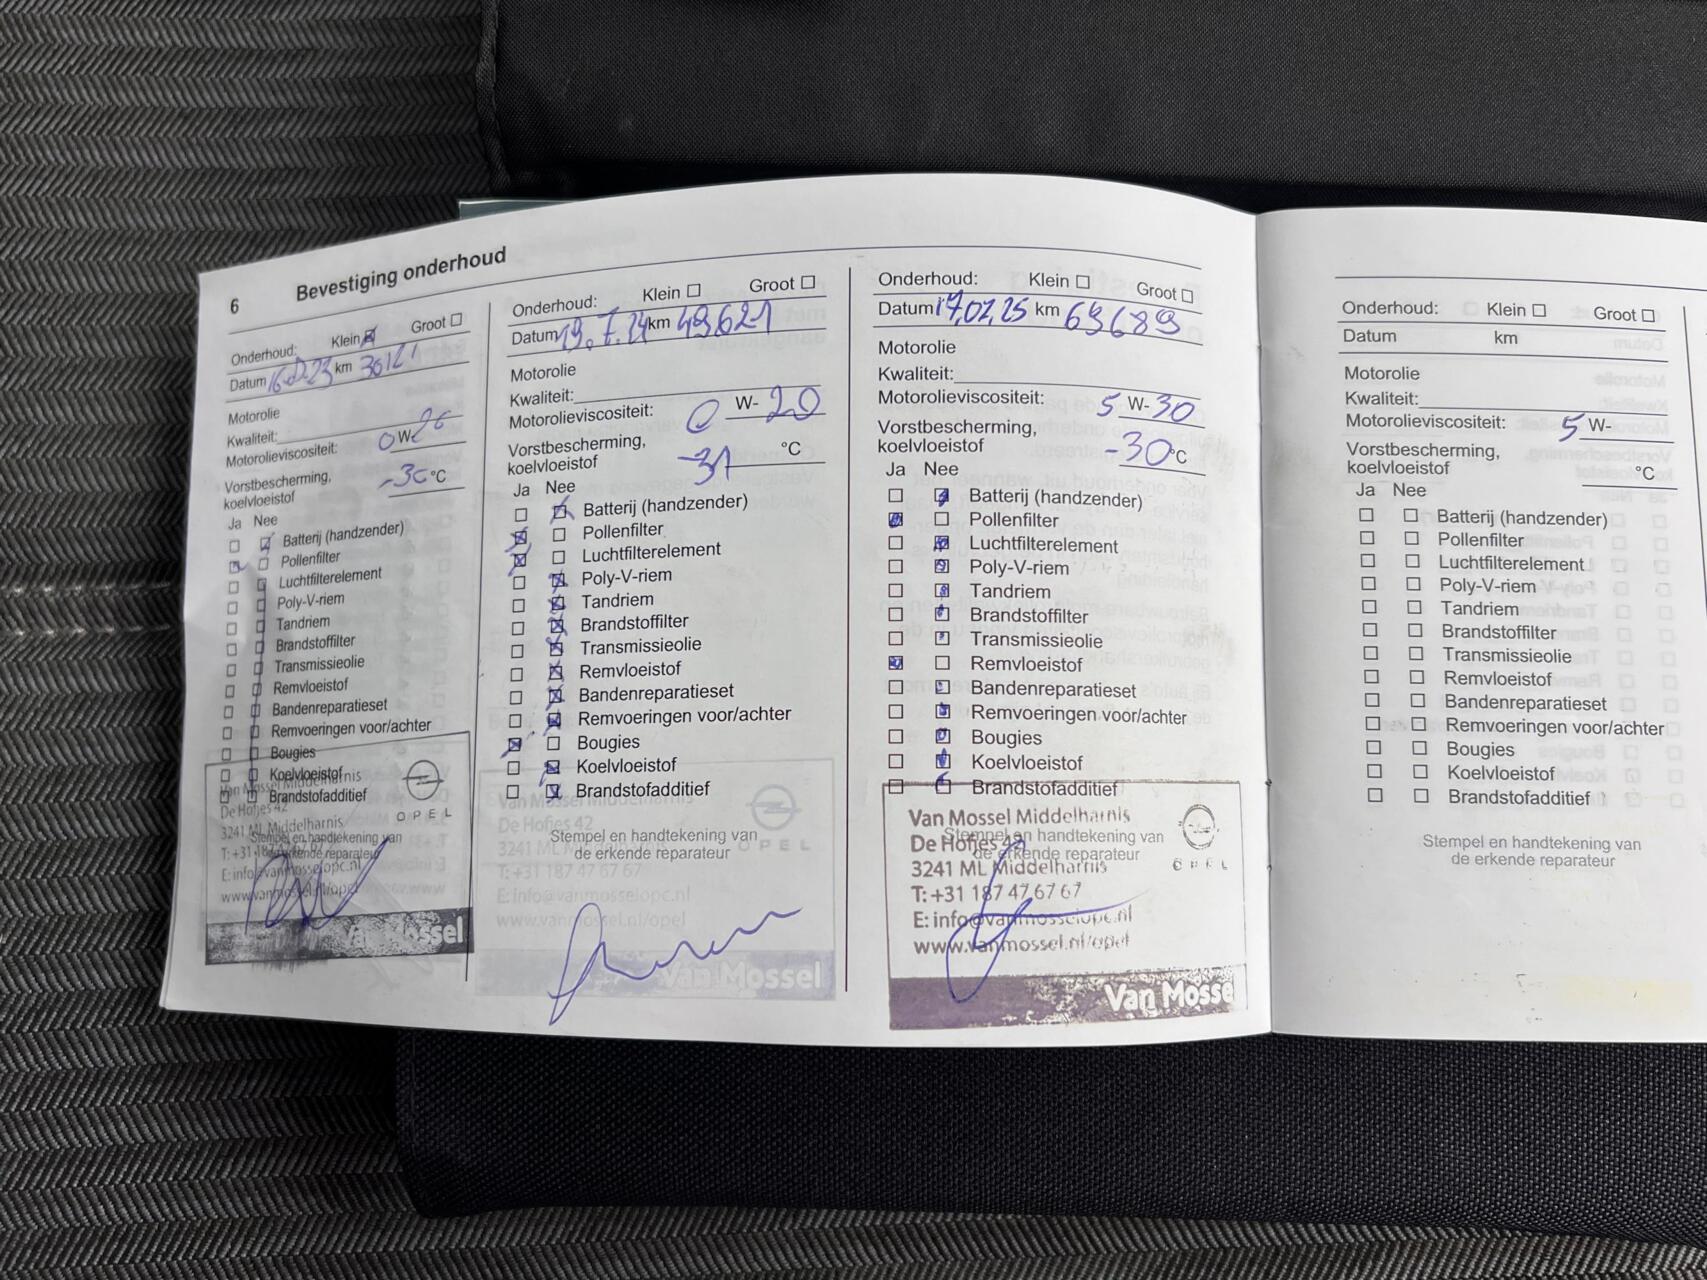 6 Bevestiging onderhoud
Onderhoud: Klein Groot
Datum km 30121
Motorolie
Kwaliteit:
Motorolieviscositeit: 0 W- 20
Vorstbescherming,
koelvloeistof -30 °C
Ja Nee
Batterij (handzender)
Pollenfilter
Luchtfilterelement
Poly-V-riem
Tandriem
Brandstoffilter
Transmissieolie
Remvloeistof
Bandenreparatieset
Remvoeringen voor/achter
Bougies
Koelvloeistof
Brandstofadditief
Stempel en handtekening van
de erkende reparateur
Van Mossel Middelharnis
De Hofjes 42
3241 ML Middelharnis
OPEL
www.vanmossel.nl/opel
Van Mossel
Onderhoud: Klein Groot
Datum 19.7.24 km 49.621
Motorolie
Kwaliteit:
Motorolieviscositeit: 0 W- 20
Vorstbescherming,
koelvloeistof -31 °C
Ja Nee
Batterij (handzender)
Pollenfilter
Luchtfilterelement
Poly-V-riem
Tandriem
Brandstoffilter
Transmissieolie
Remvloeistof
Bandenreparatieset
Remvoeringen voor/achter
Bougies
Koelvloeistof
Brandstofadditief
Stempel en handtekening van
de erkende reparateur
Van Mossel Middelharnis
De Hofjes 42
3241 ML Middelharnis
OPEL
T: +31 187 47 67 67
E: info@vanmosselopc.nl
www.vanmossel.nl/opel
Van Mossel
Onderhoud: Klein Groot
Datum 17.02.25 km 69689
Motorolie
Kwaliteit:
Motorolieviscositeit: 5 W- 30
Vorstbescherming,
koelvloeistof -30 °C
Ja Nee
Batterij (handzender)
Pollenfilter
Luchtfilterelement
Poly-V-riem
Tandriem
Brandstoffilter
Transmissieolie
Remvloeistof
Bandenreparatieset
Remvoeringen voor/achter
Bougies
Koelvloeistof
Brandstofadditief
Stempel en handtekening van
de erkende reparateur
Van Mossel Middelharnis
De Hofjes 42
3241 ML Middelharnis
OPEL
T: +31 187 47 67 67
E: info@vanmosselopc.nl
www.vanmossel.nl/opel
Van Mosse
Onderhoud: Klein Groot
Datum km
Motorolie
Kwaliteit:
Motorolieviscositeit: 5 W-
Vorstbescherming,
koelvloeistof °C
Ja Nee
Batterij (handzender)
Pollenfilter
Luchtfilterelement
Poly-V-riem
Tandriem
Brandstoffilter
Transmissieolie
Remvloeistof
Bandenreparatieset
Remvoeringen voor/achter
Bougies
Koelvloeistof
Brandstofadditief
Stempel en handtekening van
de erkende reparateur